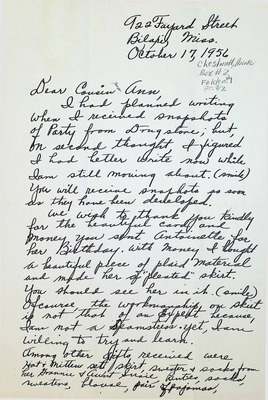 922 Fayard Street
Biloxi, Miss.
October 17, 1956
Box #2
Folder #
Dear Cousin Ann,
I had planned writing
when I received snapshots
of Party from Douglone; but,
on second thought, I figured
I had better write now while
I am still moving about. (smile)
You will receive snapshots as soon
as they have been developed.
We wish to thank you kindly
for the beautiful card and
money you sent Antoinette for
her Birthday. With money I bought
a beautiful piece of plaid material
and made her a "pleated" skirt.
You should see her in it. (smile)
Of course, the workmanship on skirt
is not that of an Expert because
I am not a Seamstress yet, I am
willing to try and learn.
Among other gifts received were
Hat & Mittens set, skirt, sweater & socks from
her Grannie & Aunt Panties, socks,
sweaters, blouse, pair of pajamas,